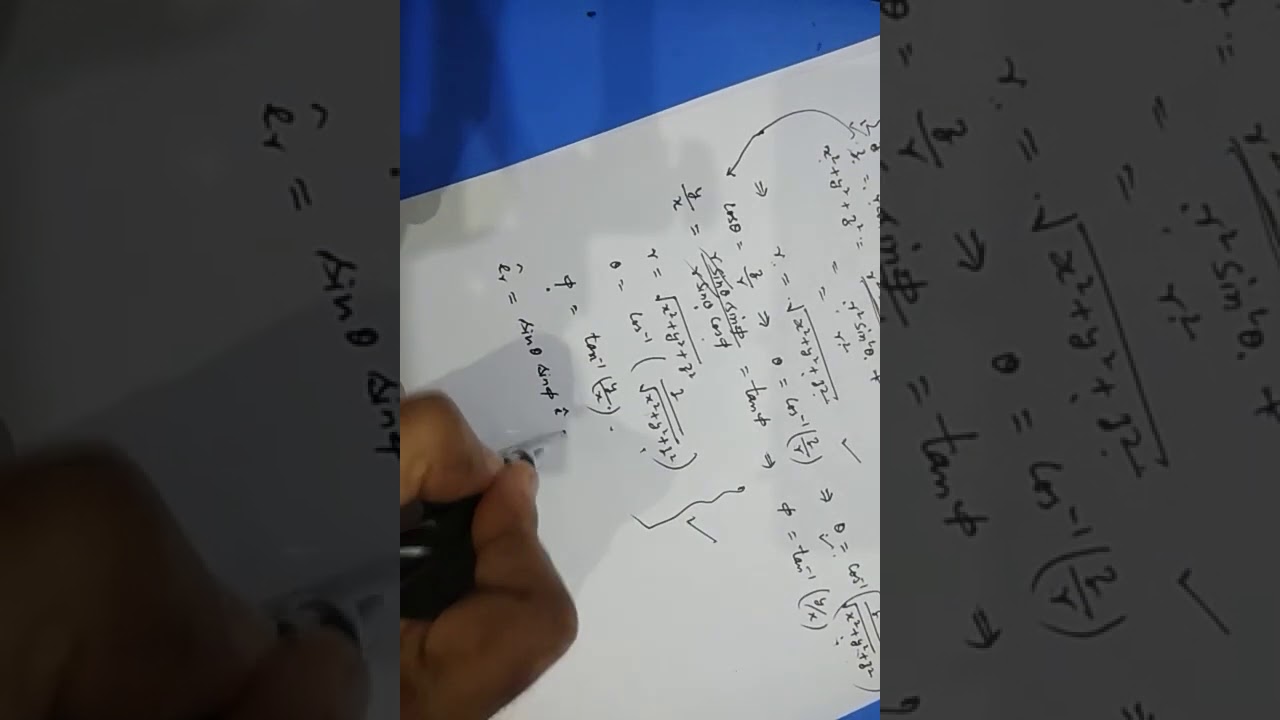 x² + y² + z² =
= r²
⇒ r = √x²+y²+z²
cosθ = z/r ⇒ θ = cos⁻¹(z/r) ⇒ θ = cos⁻¹(z/√x²+y²+z²)
y/x = r sinθ sinφ / r sinθ cosφ = tanφ ⇒ φ = tan⁻¹(y/x)
r = √x²+y²+z²
θ = cos⁻¹(z/√x²+y²+z²)
φ = tan⁻¹(y/x).
ê_r = sinθ sinφ î